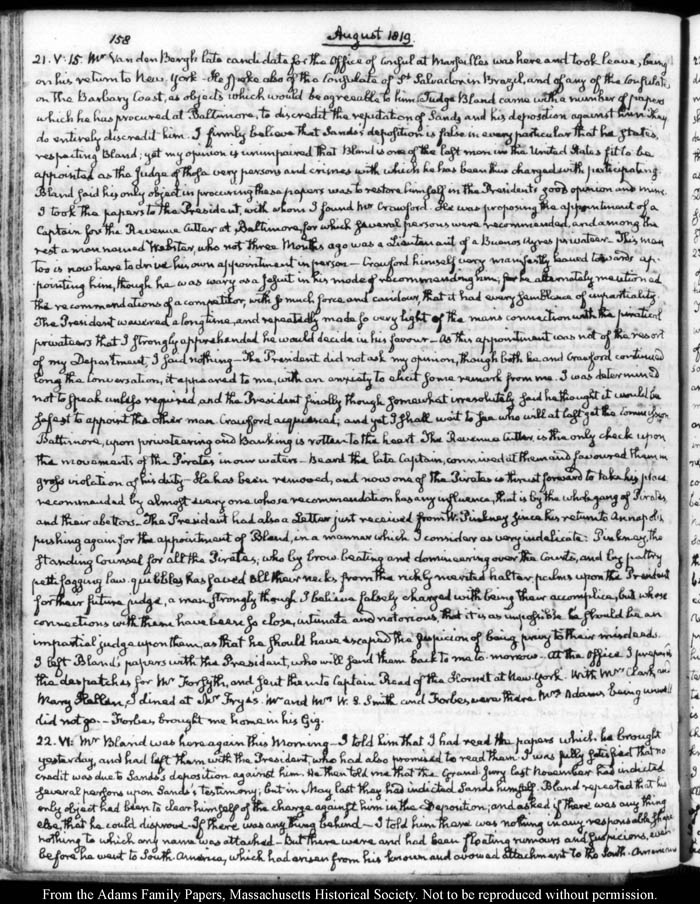 158
August 1819.
21. V: 15. Mr Van den Bergh late candidate for the Office of Consul at Marseilles was here and took leave, being
on his return to New-York. He spoke also of the Consulate of St Salvador in Brazil, and of any of the Consulates
on the Barbary Coast, as objects which would be agreeable to him. Judge Bland came with a number of papers
which he has procured at Baltimore, to discredit the reputation of Sands and his deposition against him. They
do entirely discredit him. I firmly believe that Sands's deposition is false in every particular that he states,
respecting Bland; yet my opinion is unimpaired that Bland is one of the last men in the United States fit to be
appointed as the Judge of those very persons and crimes with which he has been thus charged with participating.
Bland said his only object in procuring these papers was to restore himself in the President's good opinion and mine.
I took the papers to the President, with whom I found Mr Crawford. He was proposing the appointment of a
Captain for the Revenue Cutter at Baltimore, for which several persons were recommended, and among the
rest a man named Webster, who not three Months ago was a Lieutenant of a Buenos Ayres privateer. This man
too is now here to drive his own appointment in person — Crawford himself very manifestly leaned towards ap-
pointing him, though he was wary as a Jesuit in his mode of recommending him; for he alternately mentioned
the recommendations of a competitor, with so much force and candour, that it had every semblance of impartiality.
The President wavered a long time, and repeatedly made so very light of the man's connection with the piratical
privateers that I strongly apprehended he would decide in his favour — As this appointment was not of the resort
of my Department, I said nothing — The President did not ask my opinion, though both he and Crawford continued
long the conversation, it appeared to me, with an anxiety to elicit some remark from me. I was determined
not to speak unless required, and the President finally though somewhat irresolutely said he thought it would be
safest to appoint the other man. Crawford acquiesced; and yet I shall wait to see who will at last get the Commission
Baltimore, upon privateering and Banking is rotten to the heart. The Revenue Cutter, is the only check upon
the movements of the Pirates in our waters — Beard the late Captain, connived at them and favoured them in
gross violation of his duty — He has been removed, and now one of the Pirates is thrust forward to take his place
recommended by almost every one whose recommendation has any influence, that is by the whole gang of Pirates,
and their abettors. The President had also a Letter just received from W. Pinkney since his return to Annapolis,
pushing again for the appointment of Bland, in a manner which I consider as very indelicate. Pinkney, the
standing Counsel for all the Pirates, who by brow beating and domineering over the Courts, and by paltry
pettifogging law-quibbles has saved all their necks from the richly merited halter, palms upon the President
for their future judge, a man strongly though I believe falsely charged with being their accomplice, but whose
connections with them have been so close, intimate and notorious, that it is as impossible he should be an
impartial judge upon them, as that he should have escaped the suspicion of being privy to their misdeeds.
I left Bland's papers with the President, who will send them back to me to-morrow. At the Office I prepared
the despatches for Mr Forsyth, and sent them to Captain Read of the Hornet at New-York. With Mrs Clark, and
Mary Hellen, I dined at Mr Frye's. Mr and Mrs W. S. Smith and Forbes, were there. Mrs Adams being unwell
did not go. — Forbes, brought me home in his Gig.
22. VI: Mr Bland was here again this Morning — I told him that I had read the papers which he brought
yesterday, and had left them with the President, who had also promised to read them. I was fully satisfied that no
credit was due to Sands's deposition against him. He then told me that the Grand Jury last November had indicted
several persons upon Sands's testimony; but in May last they had indicted Sands himself. Bland repeated that his
only object had been to clear himself of the charge against him in the Deposition; and asked if there was any thing
else, that he could disprove. If there was any thing behind — I told him there was nothing in any responsible shape
nothing to which any name was attached — But there were and had been floating rumours and suspicions, even
before he went to South-America, which had arisen from his known and avowed attachment to the South-American
From the Adams Family Papers, Massachusetts Historical Society. Not to be reproduced without permission.